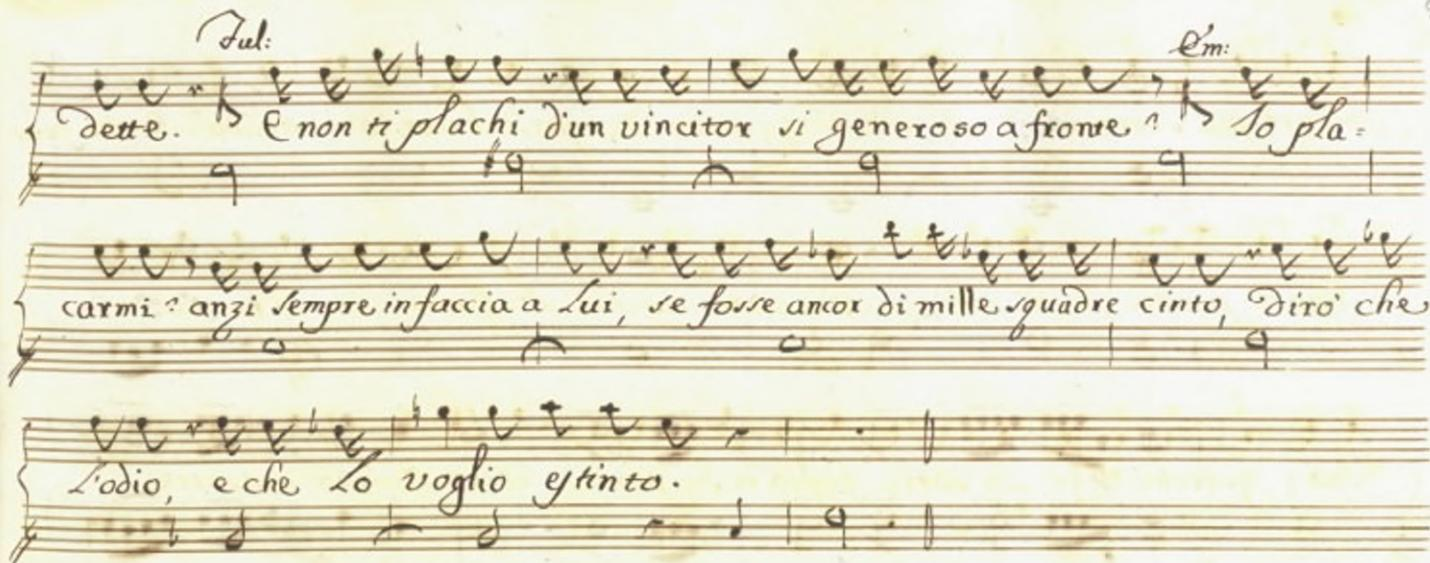 Ful: Em:
dette. E non ti plachi d'un vincitor si generoso a fronte? Io pla=
carmi? anzi sempre in faccia a Lui, se fosse ancor di mille squadre cinto, dirò che
L'odio, e che Lo voglio estinto.